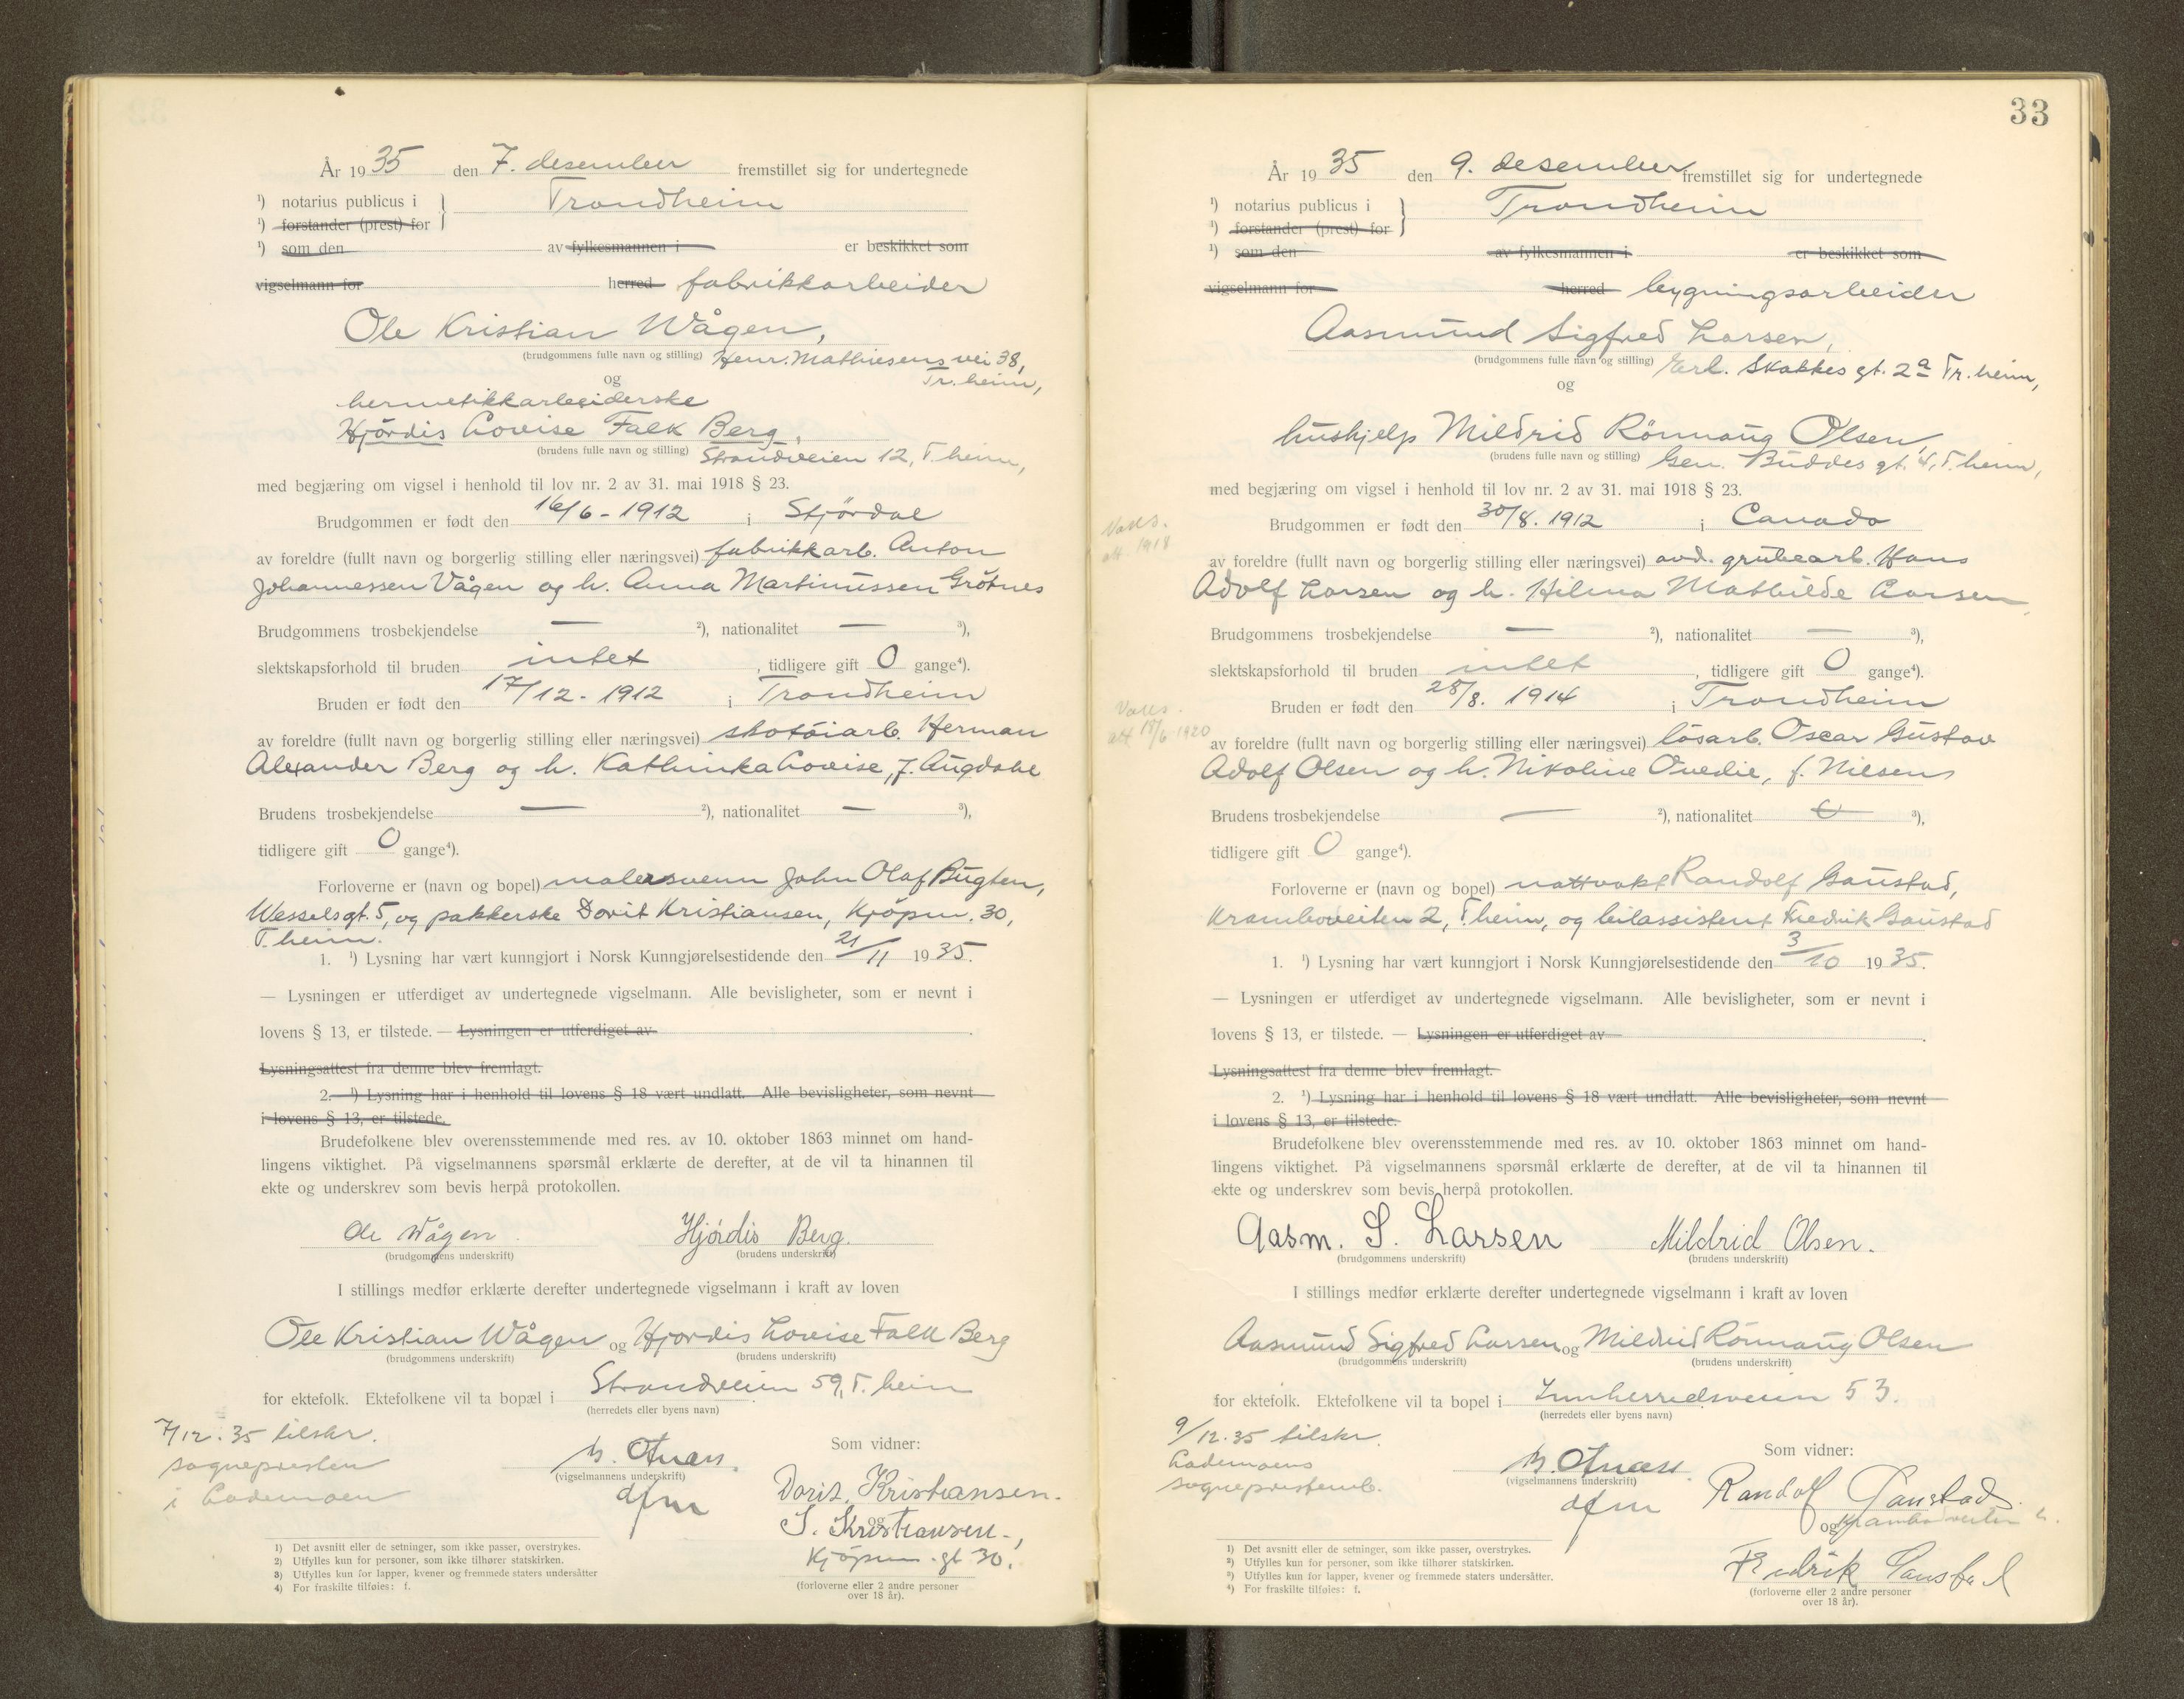 År 1935 den 7. desember fremstillet sig for undertegnede
¹) notarius publicus i
¹) forstander (prest) for
Trondheim
¹) som den av fylkesmannen i er beskikket som
vigselmann for herred fabrikkarbeider
Ole Kristian Wågen,
(brudgommens fulle navn og stilling) Henr. Mathiesens vei 38,
og Tr.heim,
hermetikkarbeiderske
Hjördis Lovise Falk Berg,
(brudens fulle navn og stilling) Strandveien 12, T.heim,
med begjæring om vigsel i henhold til lov nr. 2 av 31. mai 1918 § 23.
Brudgommen er født den 16/6 - 1912 i Stjördal
av foreldre (fullt navn og borgerlig stilling eller næringsvei) fabrikkarb. Anton
Johannessen Vågen og h. Anna Martinussen Grötnes
Brudgommens trosbekjendelse — ²), nationalitet — ³),
slektskapsforhold til bruden intet , tidligere gift 0 gange⁴).
Bruden er født den 17/12 - 1912 i Trondheim
av foreldre (fullt navn og borgerlig stilling eller næringsvei) skotöiarb. Herman
Alexander Berg og h. Kathinka Lovise, f. Augdahl
Brudens trosbekjendelse — ²), nationalitet — ³),
tidligere gift 0 gange⁴).
Forloverne er (navn og bopel) malersvenn John Olaf Bugten,
Wesselsgt. 5, og pakkerske Dorit Kristiansen, Kjöpm. 30,
T.heim.
1. ¹) Lysning har vært kunngjort i Norsk Kunngjørelsestidende den 21/11 1935.
— Lysningen er utferdiget av undertegnede vigselmann. Alle bevisligheter, som er nevnt i
lovens § 13, er tilstede. — Lysningen er utferdiget av
Lysningsattest fra denne blev fremlagt.
2. ¹) Lysning har i henhold til lovens § 18 vært undlatt. Alle bevisligheter, som nevnt
i lovens § 13, er tilstede.
Brudefolkene blev overensstemmende med res. av 10. oktober 1863 minnet om hand-
lingens viktighet. På vigselmannens spørsmål erklærte de derefter, at de vil ta hinannen til
ekte og underskrev som bevis herpå protokollen.
Ole Wågen. Hjördis Berg.
(brudgommens underskrift) (brudens underskrift)
I stillings medfør erklærte derefter undertegnede vigselmann i kraft av loven
Ole Kristian Wågen og Hjordis Lovise Falk Berg
(brudgommens underskrift) (brudens underskrift)
for ektefolk. Ektefolkene vil ta bopæl i Strandveien 59, T.heim
(herredets eller byens navn)
7/12.35 tilskr.
sognepresten
i Lademoen
(vigselmannens underskrift)
dfm
Som vidner:
Dorit Kristiansen.
og
S. Kristiansen,
Kjöpm.gt 30.
(forloverne eller 2 andre personer
over 18 år).
1) Det avsnitt eller de setninger, som ikke passer, overstrykes.
2) Utfylles kun for personer, som ikke tilhører statskirken.
3) Utfylles kun for lapper, kvener og fremmede staters undersåtter
4) For fraskilte tilføies: f.
33
År 1935 den 9. desember fremstillet sig for undertegnede
¹) notarius publicus i
¹) forstander (prest) for
Trondheim
¹) som den av fylkesmannen i er beskikket som
vigselmann for herred bygningsarbeider
Aasmund Sigfred Larsen,
(brudgommens fulle navn og stilling) Erl. Skakkes gt. 2a Tr.heim,
og
hushjelp Mildrid Rönnaug Olsen,
(brudens fulle navn og stilling) Gen. Buddes gt. 4, T.heim,
med begjæring om vigsel i henhold til lov nr. 2 av 31. mai 1918 § 23.
Vaks.
att. 1918
Brudgommen er født den 30/8. 1912 i Canada
av foreldre (fullt navn og borgerlig stilling eller næringsvei) avd. grubearb. Hans
Adolf Larsen og h. Hilma Mathilde Larsen
Brudgommens trosbekjendelse — ²), nationalitet — ³),
slektskapsforhold til bruden intet , tidligere gift 0 gange⁴).
Vaks.
att 18/6 1920
Bruden er født den 28/8. 1914 i Trondheim
av foreldre (fullt navn og borgerlig stilling eller næringsvei) lösarb. Oscar Gustav
Adolf Olsen og h. Nikoline Ovedie, f. Nilsen
Brudens trosbekjendelse — ²), nationalitet ³),
tidligere gift 0 gange⁴).
Forloverne er (navn og bopel) nattvakt Randolf Gaustad,
Kramboveiten 2, T.heim, og bilassistent Fredrik Gaustad
1. ¹) Lysning har vært kunngjort i Norsk Kunngjørelsestidende den 3/10 1935.
— Lysningen er utferdiget av undertegnede vigselmann. Alle bevisligheter, som er nevnt i
lovens § 13, er tilstede. — Lysningen er utferdiget av
Lysningsattest fra denne blev fremlagt.
2. ¹) Lysning har i henhold til lovens § 18 vært undlatt. Alle bevisligheter, som nevnt
i lovens § 13, er tilstede.
Brudefolkene blev overensstemmende med res. av 10. oktober 1863 minnet om hand-
lingens viktighet. På vigselmannens spørsmål erklærte de derefter, at de vil ta hinannen til
ekte og underskrev som bevis herpå protokollen.
Aasm. S. Larsen Mildrid Olsen.
(brudgommens underskrift) (brudens underskrift)
I stillings medfør erklærte derefter undertegnede vigselmann i kraft av loven
Aasmund Sigfred Larsen og Mildrid Rönnaug Olsen
(brudgommens underskrift) (brudens underskrift)
for ektefolk. Ektefolkene vil ta bopel i Innherredsveien 53.
(herredets eller byens navn)
9/12.35 tilskr.
Lademoens
sogneprestemb.
(vigselmannens underskrift)
dfm
Som vidner:
Randolf Gaustad.
og Kramboveiten 2.
Fredrik Gaustad
(forloverne eller 2 andre personer
over 18 år).
1) Det avsnitt eller de setninger, som ikke passer, overstrykes.
2) Utfylles kun for personer, som ikke tilhører statskirken.
3) Utfylles kun for lapper, kvener og fremmede staters undersåtter.
4) For fraskilte tilføies: f.